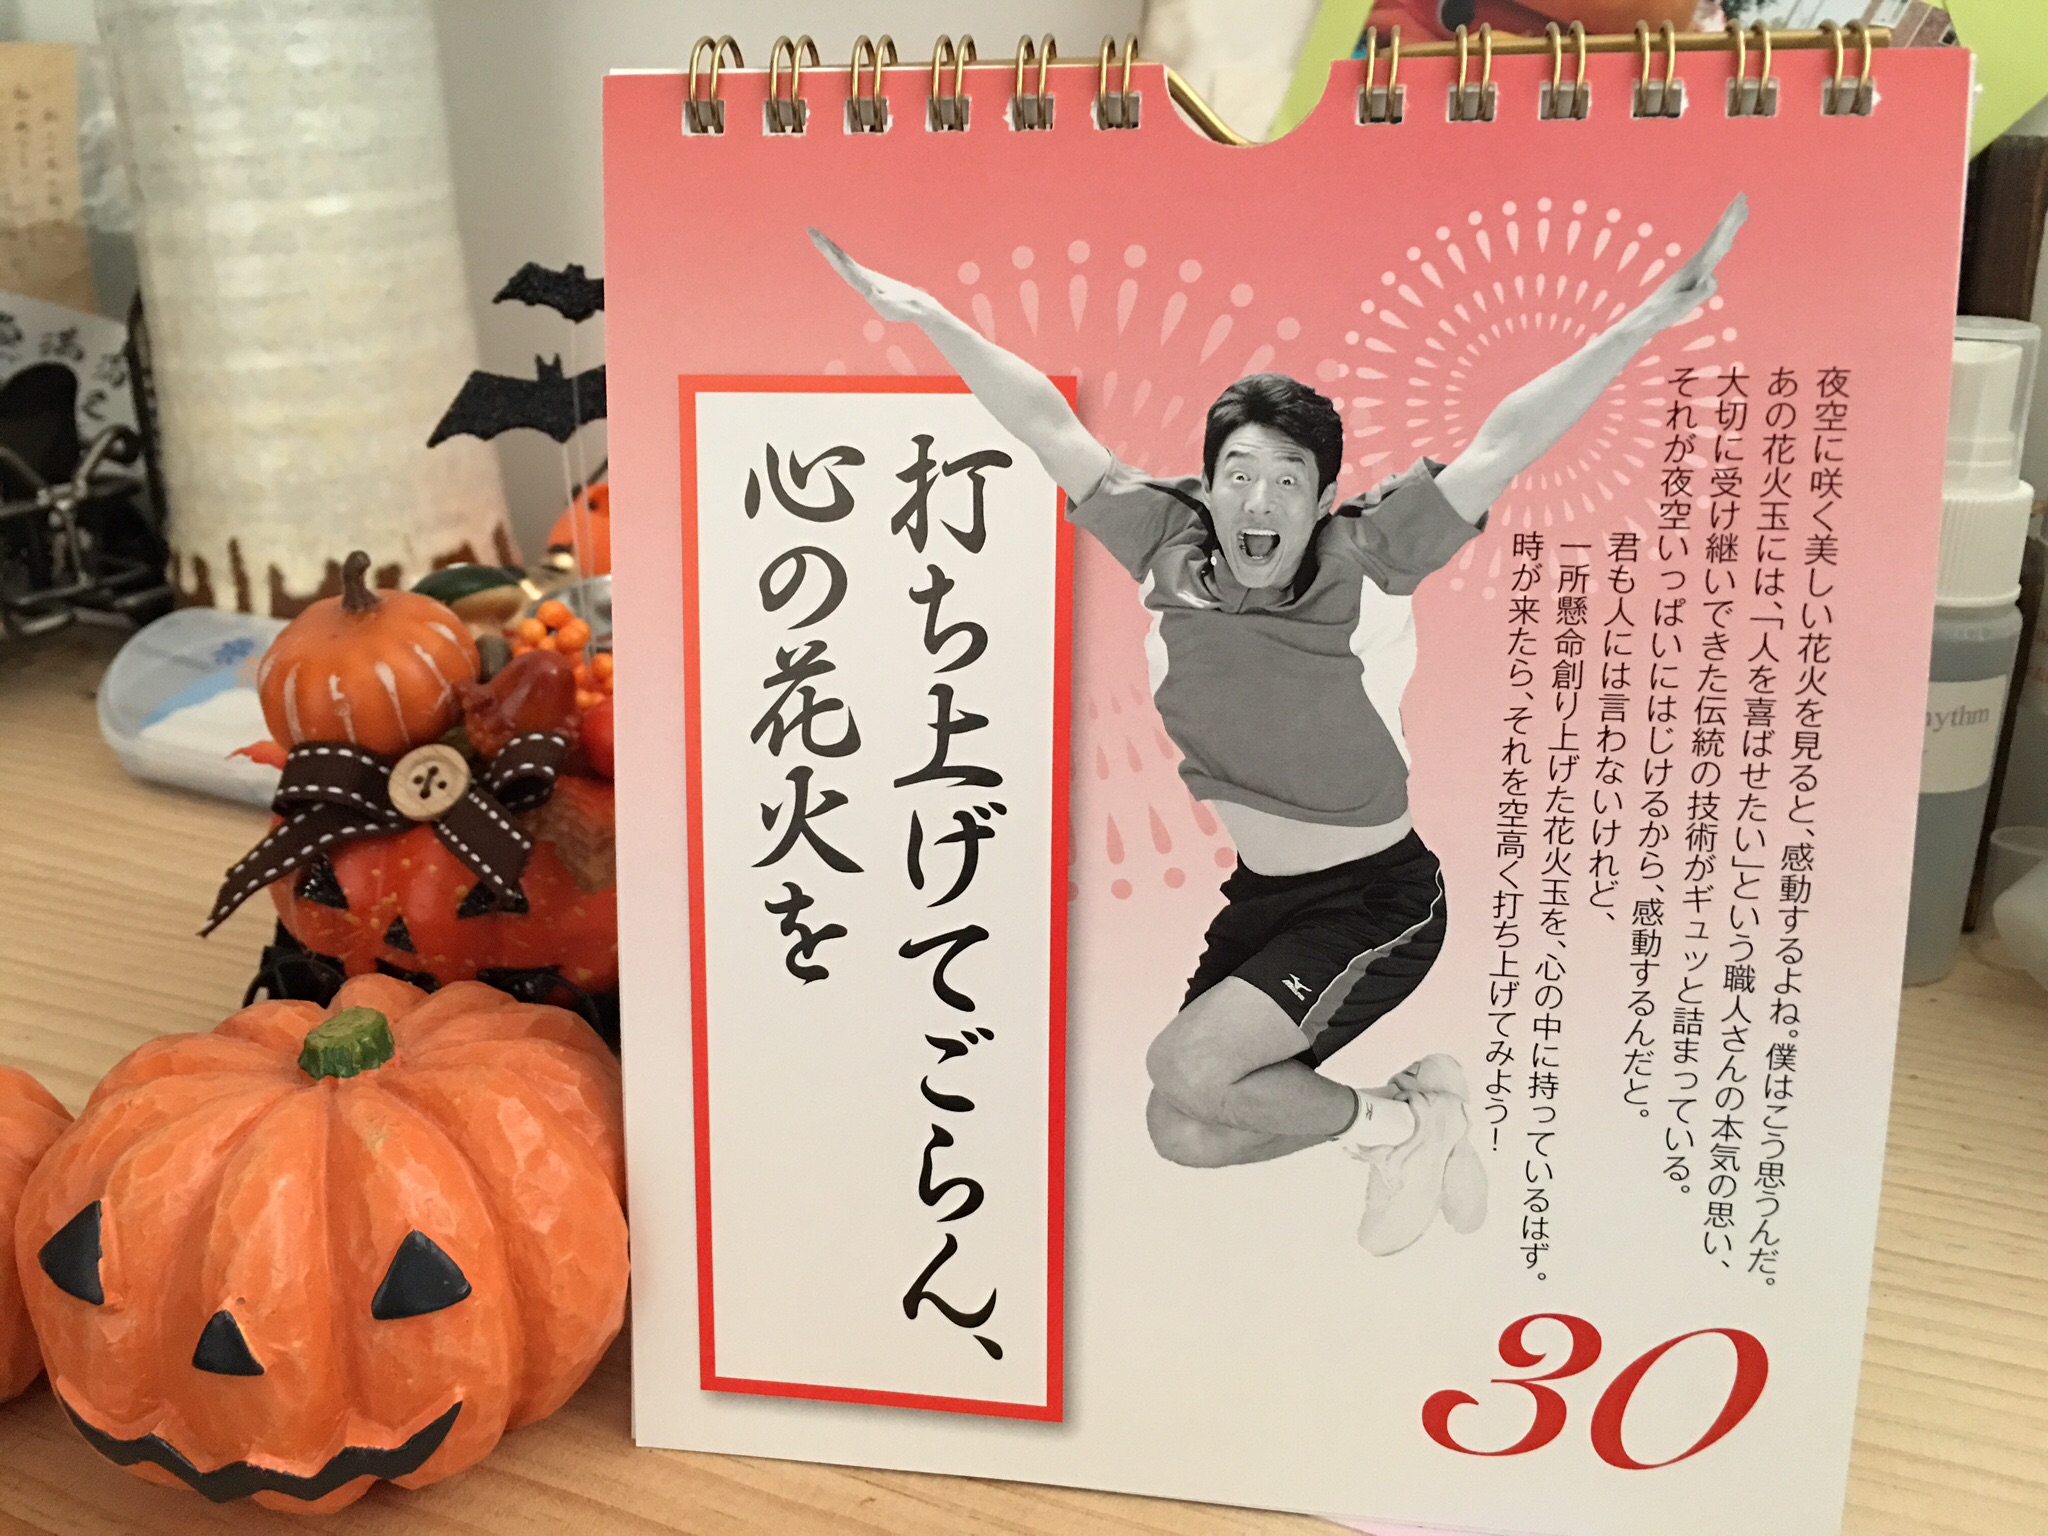 打ち上げてごらん、
心の花火を
夜空に咲く美しい花火を見ると、感動するよね。僕はこう思うんだ。
あの花火玉には、「人を喜ばせたい」という職人さんの本気の思い、
大切に受け継いできた伝統の技術がギュッと詰まっている。
それが夜空いっぱいにはじけるから、感動するんだと。
君も人には言わないけれど、
一所懸命創り上げた花火玉を、心の中に持っているはず。
時が来たら、それを空高く打ち上げてみよう!
30